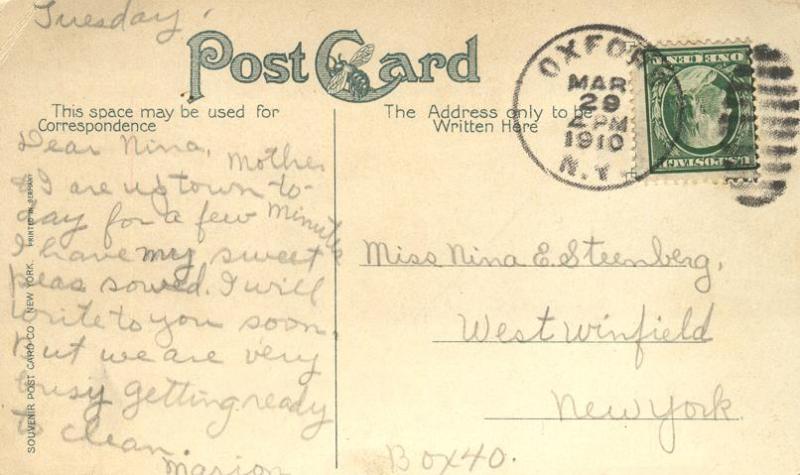 Tuesday.
Post Card
This space may be used for
Correspondence
The Address only to be
Written Here
OXFORD
MAR
29
2 PM
1910
N.Y.
ONE CENT
U.S. POSTAGE
Dear Nina, Mother
& I are up town to-
day for a few minutes
I have my sweet
peas sowed. I will
write to you soon.
But we are very
busy getting ready
to clean.
Marion
Miss Nina E. Steenberg,
West Winfield
New York.
Box 40.
SOUVENIR POST CARD CO. NEW YORK. PRINTED IN GERMANY